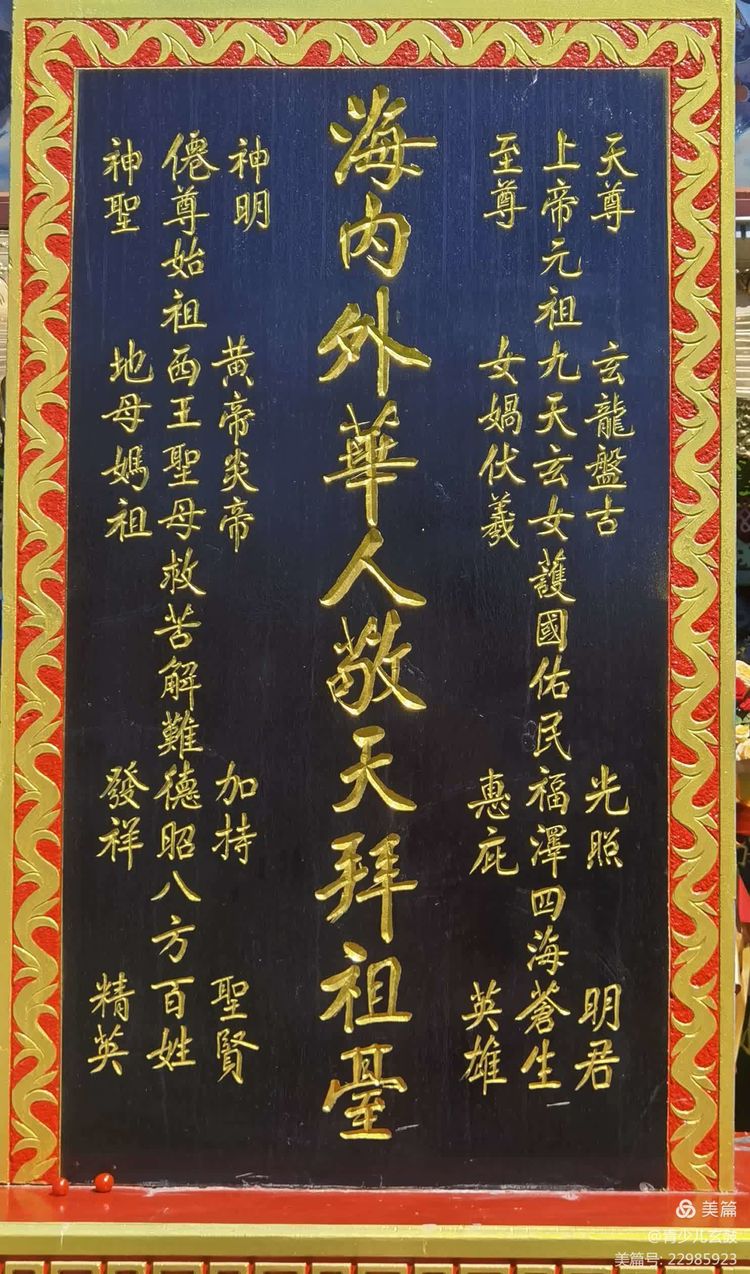 天尊 玄龍盤古 光照 明君
上帝元祖九天玄女護國佑民福澤四海蒼生
至尊 女媧伏羲 惠庇 英雄
海内外華人敬天拜祖臺
神明 黃帝炎帝 加持 聖賢
僊尊始祖西王聖母救苦解難德昭八方百姓
神聖 地母媽祖 發祥 精英
美篇
@青少儿玄鼓
美篇号: 22985923